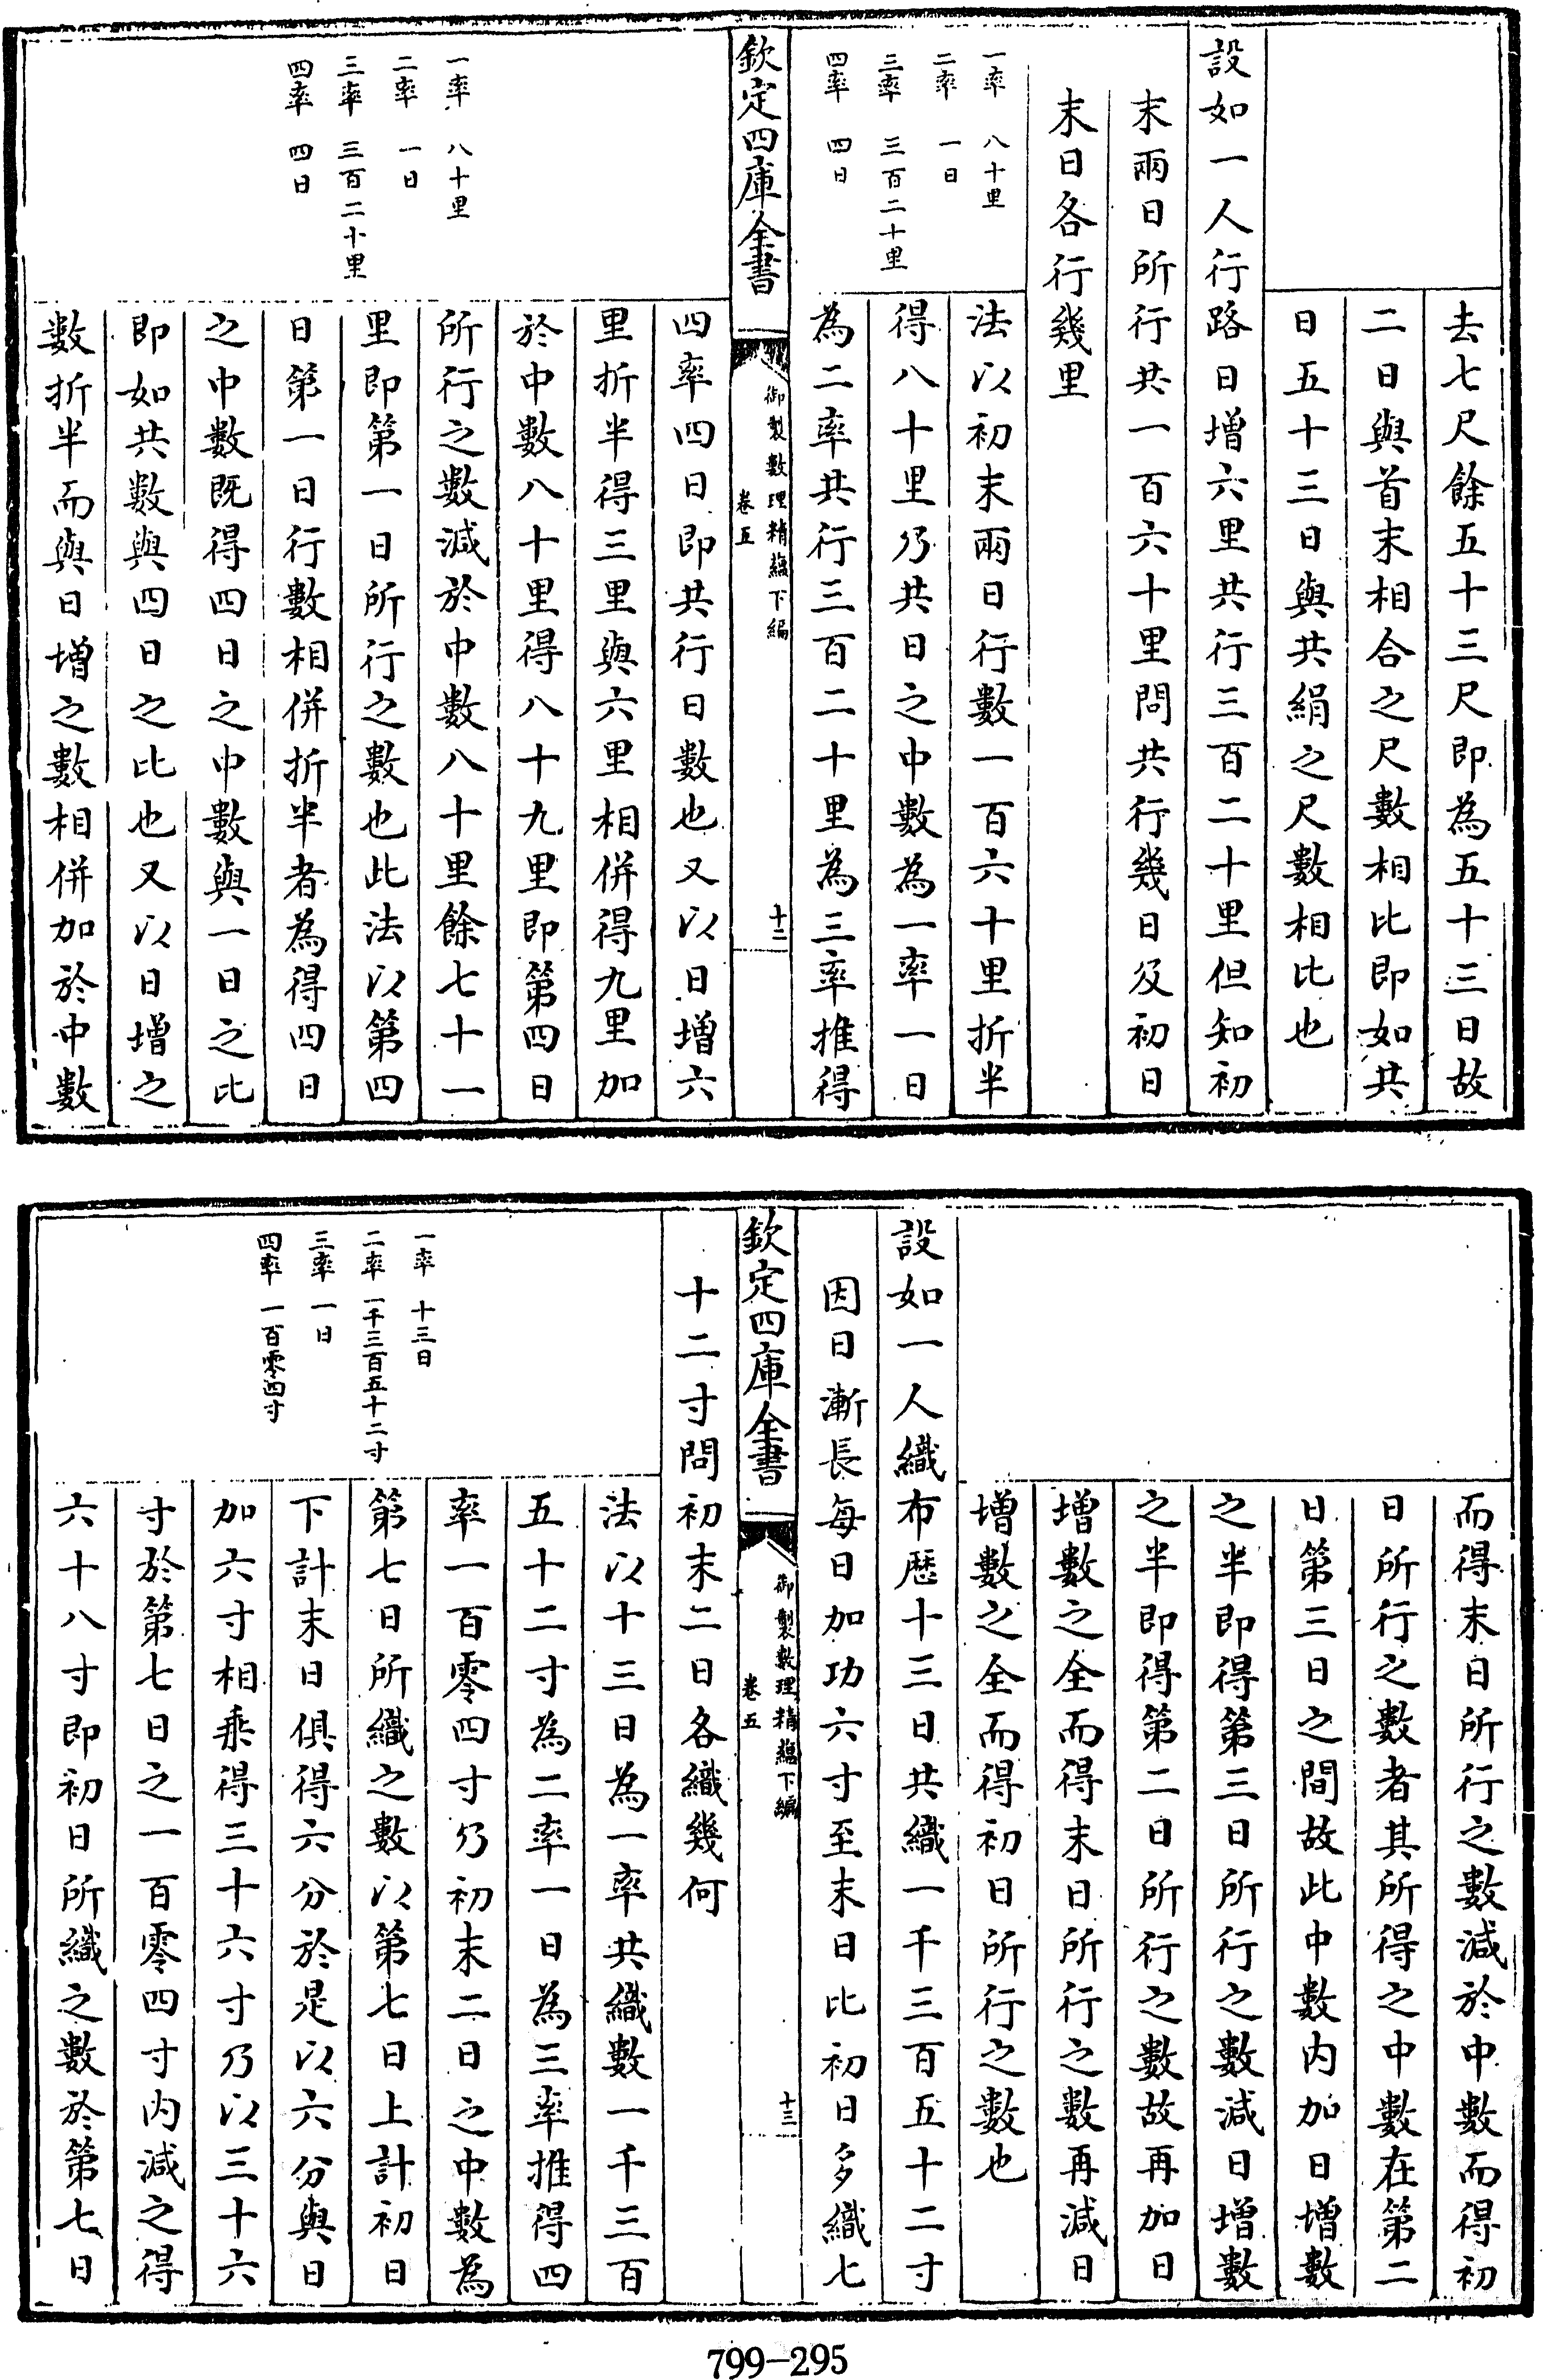 去七尺餘五十三尺即為五十三日故
二日與首末相合之尺數相比即如共
日五十三日與共絹之尺數相比也
設如一人行路日增六里共行三百二十里但知初
末兩日所行共一百六十里問共行幾日及初日
末日各行幾里
一率　八十里
二率　一日
三率　三百二十里
四率　四日
法以初末兩日行數一百六十里折半
得八十里乃共日之中數為一率一日
為二率共行三百二十里為三率推得
欽定四庫全書
御製數理精蘊下編
卷五
十二
一率　八十里
二率　一日
三率　三百二十里
四率　四日
四率四日即共行日數也又以日增六
里折半得三里與六里相併得九里加
於中數八十里得八十九里即第四日
所行之數減於中數八十里餘七十一
里即第一日所行之數也此法以第四
日第一日行數相併折半者為得四日
之中數既得四日之中數與一日之比
即如共數與四日之比也又以日增之
數折半而與日增之數相併加於中數
而得末日所行之數減於中數而得初
日所行之數者其所得之中數在第二
日第三日之間故此中數内加日增數
之半即得第三日所行之數減日增數
之半即得第二日所行之數故再加日
增數之全而得末日所行之數再減日
增數之全而得初日所行之數也
設如一人織布歷十三日共織一千三百五十二寸
因日漸長每日加功六寸至末日比初日多織七
欽定四庫全書
御製數理精蘊下編
卷五
十三
十二寸問初末二日各織幾何
一率　十三日
二率　一千三百五十二寸
三率　一日
四率　一百零四寸
法以十三日為一率共織數一千三百
五十二寸為二率一日為三率推得四
率一百零四寸乃初末二日之中數為
第七日所織之數以第七日上計初日
下計末日俱得六分於是以六分與日
加六寸相乘得三十六寸乃以三十六
寸於第七日之一百零四寸内減之得
六十八寸即初日所織之數於第七日
799-295